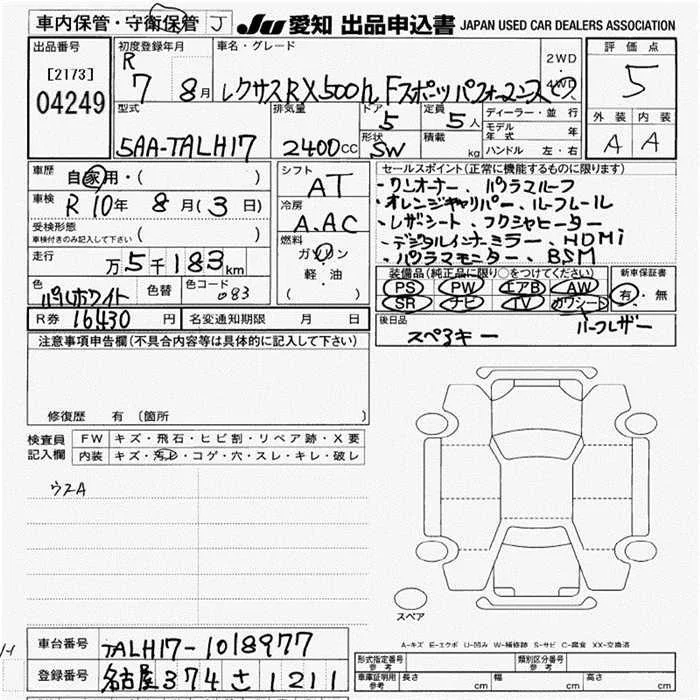 車内保管・守衛保管 J JU 愛知 出品申込書 JAPAN USED CAR DEALERS ASSOCIATION
出品番号
[2173]
04249
初度登録年月
R
7 8月
車名・グレード
レクサスRX500h Fスポーツパフォーマンス
2WD
4WD
評価点
5
外装 内装
A A
型式
5AA-TALH17
排気量
2400cc
ドア
5
形状
SW
定員
5人
積載
kg
ディーラー・並行
モデル年式 年
ハンドル 左・右
車歴 自家用・( )
車検 R10年 8月(3日)
受検形態
車検付きのみ記入して下さい ( )
走行 万5千183km
色 パールホワイト
色替
色コード 083
シフト
AT
冷房
A.AC
燃料
ガソリン
軽・油
( )
セールスポイント(正常に機能するものに限ります)
・ワンオーナー、パノラマルーフ
・オレンジキャリパー、ルーフレール
・レザーシート、フクシャヒーター
・デジタルインナーミラー、HDMi
・パノラマモニター、BSM
装備品(純正品に限り○をつけてください)
PS PW エアB AW
SR ナビ TV カワシート
ハーフレザー
新車保証書
有・無
R券 16,430円
名変通知期限 月 日
後日品
スペアキー
注意事項申告欄(不具合内容等は具体的に記入して下さい)
修復歴 有 〔箇所 〕
検査員記入欄
FW キズ・飛石・ヒビ割・リペア跡・X要
内装 キズ・汚レ・コゲ・穴・スレ・キレ・破レ
ウスA
スペア
A-キズ E-エクボ U-凹み W-補修跡 S-サビ C-腐食 XX-交換済
車台番号 TALH17-1018977
登録番号 名古屋 374 さ 1211
形式指定番号 参考
類別区分番号 参考
車庫証明用 参考 長さ cm 幅 cm 高さ cm